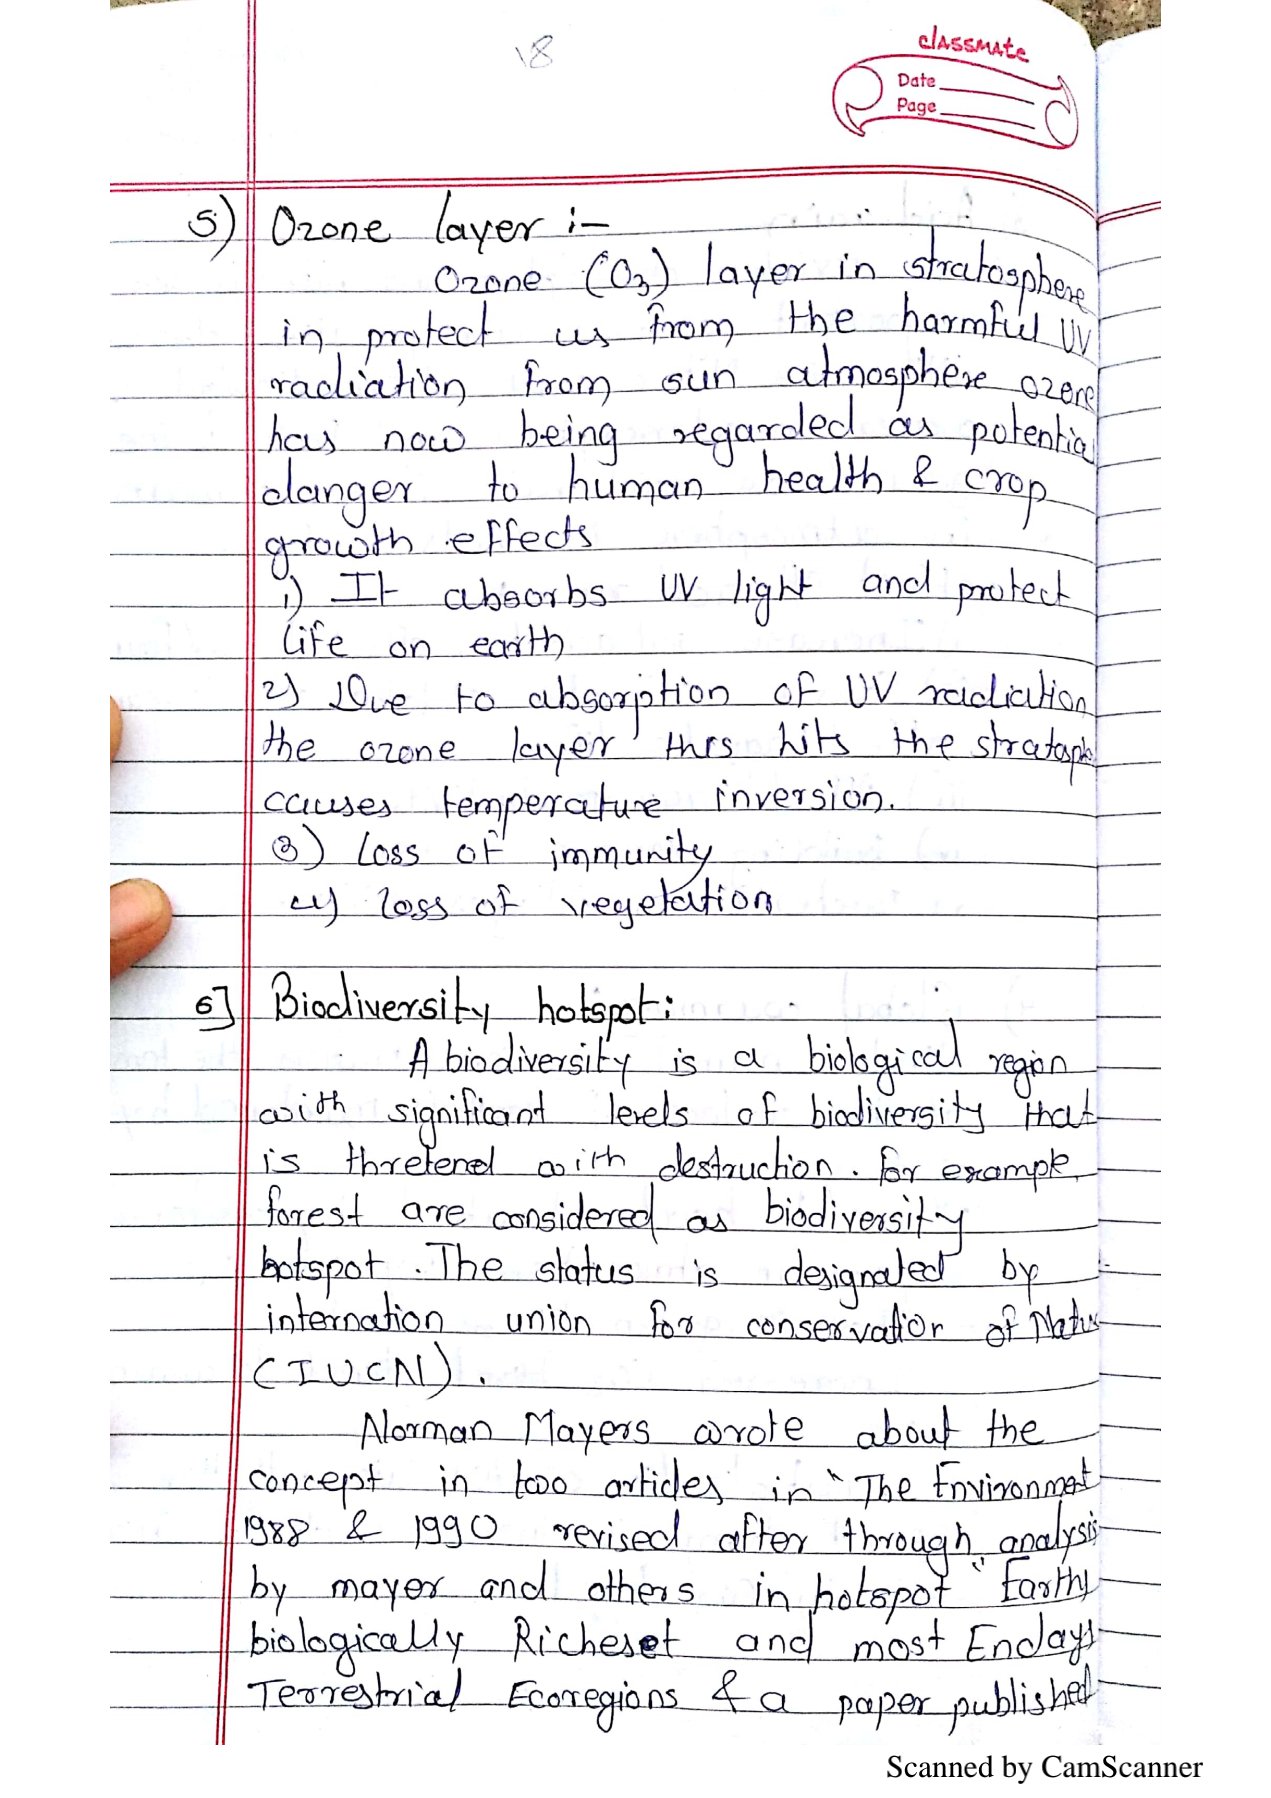 18
classmate
Date
Page
5) Ozone layer :-
Ozone (O3) layer in stratosphere
in protect us from the harmful UV
radiation from sun atmosphere ozone
has now being regarded as potential
danger to human health & crop
growth effects
1) It absorbs UV light and protect
life on earth
2) Due to absorption of UV radiation
the ozone layer this hits the stratosph
causes temperature inversion.
3) Loss of immunity
4) loss of vegetation
6] Biodiversity hotspot:
A biodiversity is a biological region
with significant levels of biodiversity that
is thretened with destruction. for example
forest are considered as biodiversity
hotspot. The status is designated by
internation union for conservation of Natur
(IUCN).
Norman Mayers wrote about the
concept in two articles in "The Environment
1988 & 1990 revised after through analysis
by mayer and others in hotspot "Earths
biologically Richeset and most
Terrestrial Ecoregions & a paper published
Scanned by CamScanner